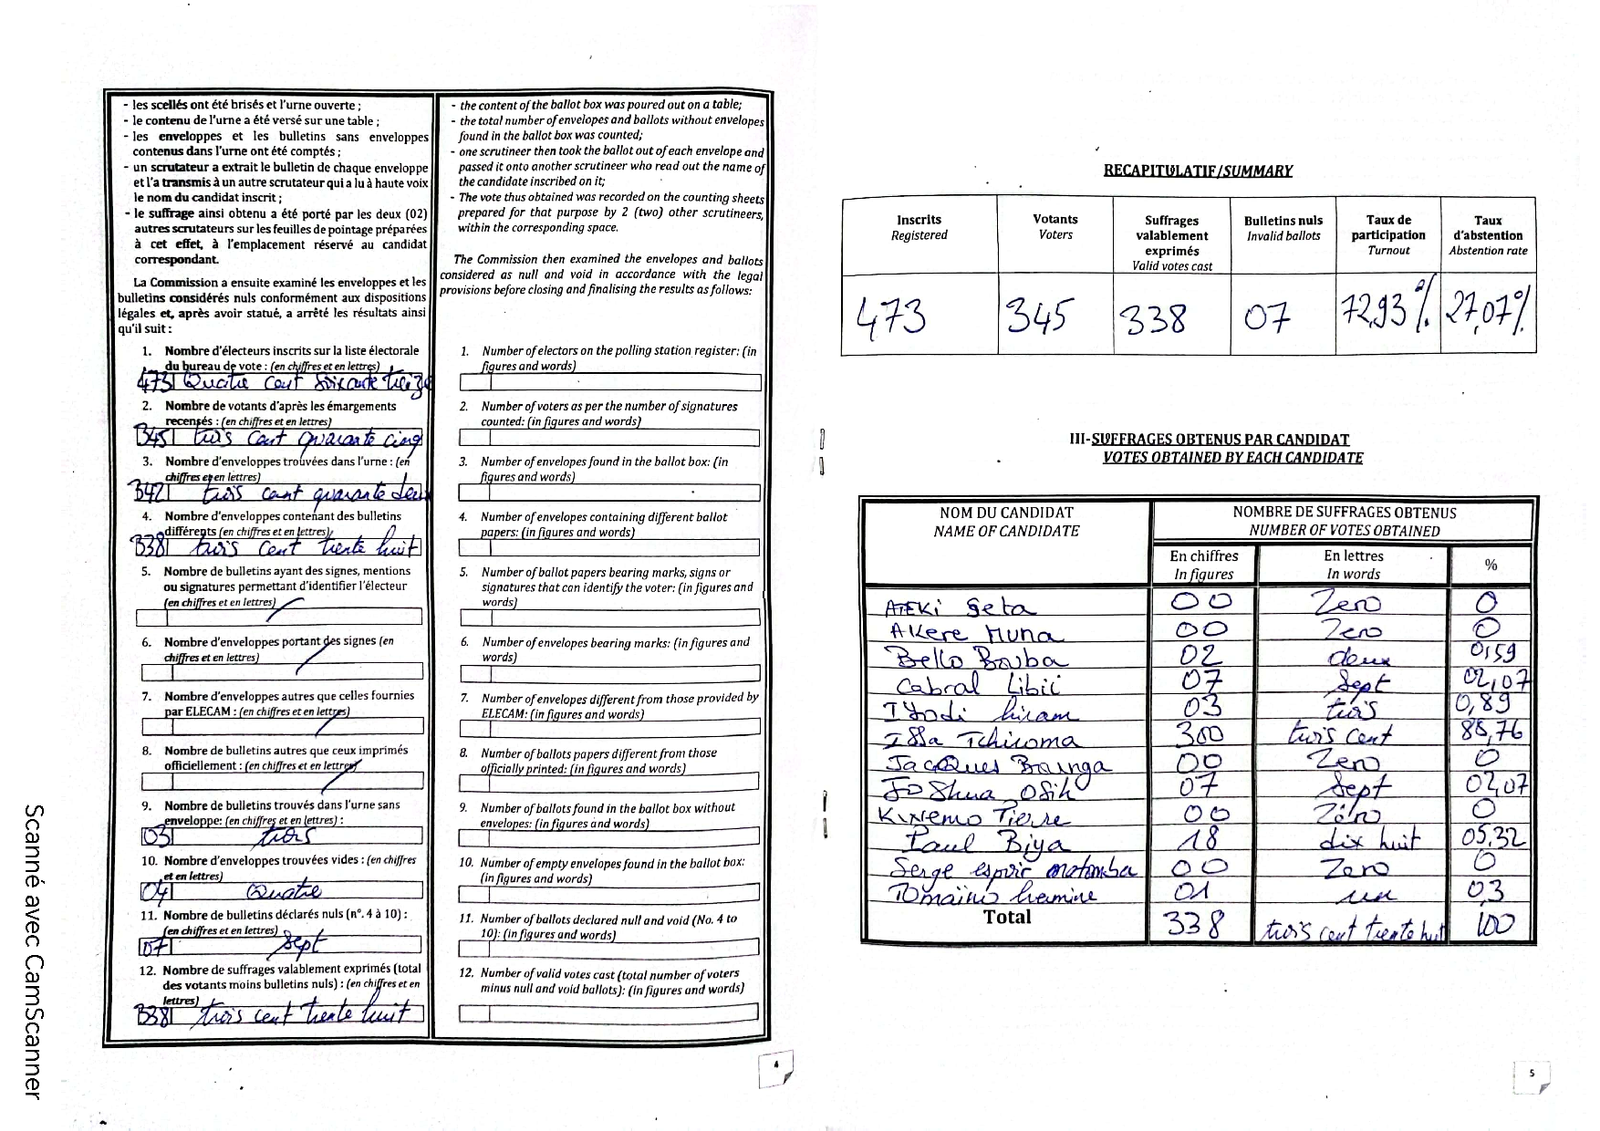 - les scellés ont été brisés et l'urne ouverte ;
- le contenu de l'urne a été versé sur une table ;
- les enveloppes et les bulletins sans enveloppes
contenus dans l'urne ont été comptés ;
- un scrutateur a extrait le bulletin de chaque enveloppe
et l'a transmis à un autre scrutateur qui a lu à haute voix
le nom du candidat inscrit ;
- le suffrage ainsi obtenu a été porté par les deux (02)
autres scrutateurs sur les feuilles de pointage préparées
à cet effet, à l'emplacement réservé au candidat
correspondant.
La Commission a ensuite examiné les enveloppes et les
bulletins considérés nuls conformément aux dispositions
légales et, après avoir statué, a arrêté les résultats ainsi
qu'il suit :
1. Nombre d'électeurs inscrits sur la liste électorale
du bureau de vote : (en chiffres et en lettres)
473 Quatre cent soixante treize
2. Nombre de votants d'après les émargements
recensés : (en chiffres et en lettres)
345 trois cent quarante cinq
3. Nombre d'enveloppes trouvées dans l'urne : (en
chiffres et en lettres)
342 trois cent quarante deux
4. Nombre d'enveloppes contenant des bulletins
différents (en chiffres et en lettres)
338 trois cent trente huit
5. Nombre de bulletins ayant des signes, mentions
ou signatures permettant d'identifier l'électeur
(en chiffres et en lettres)
6. Nombre d'enveloppes portant des signes (en
chiffres et en lettres)
7. Nombre d'enveloppes autres que celles fournies
par ELECAM : (en chiffres et en lettres)
8. Nombre de bulletins autres que ceux imprimés
officiellement : (en chiffres et en lettres)
9. Nombre de bulletins trouvés dans l'urne sans
enveloppe: (en chiffres et en lettres) :
03 trois
10. Nombre d'enveloppes trouvées vides : (en chiffres
et en lettres)
04 Quatre
11. Nombre de bulletins déclarés nuls (n°. 4 à 10) :
(en chiffres et en lettres)
07 Sept
12. Nombre de suffrages valablement exprimés (total
des votants moins bulletins nuls) : (en chiffres et en
lettres)
338 trois cent trente huit
- the content of the ballot box was poured out on a table;
- the total number of envelopes and ballots without envelopes
found in the ballot box was counted;
- one scrutineer then took the ballot out of each envelope and
passed it onto another scrutineer who read out the name of
the candidate inscribed on it;
- The vote thus obtained was recorded on the counting sheets
prepared for that purpose by 2 (two) other scrutineers,
within the corresponding space.
The Commission then examined the envelopes and ballots
considered as null and void in accordance with the legal
provisions before closing and finalising the results as follows:
1. Number of electors on the polling station register: (in
figures and words)
2. Number of voters as per the number of signatures
counted: (in figures and words)
3. Number of envelopes found in the ballot box: (in
figures and words)
4. Number of envelopes containing different ballot
papers: (in figures and words)
5. Number of ballot papers bearing marks, signs or
signatures that can identify the voter: (in figures and
words)
6. Number of envelopes bearing marks: (in figures and
words)
7. Number of envelopes different from those provided by
ELECAM: (in figures and words)
8. Number of ballots papers different from those
officially printed: (in figures and words)
9. Number of ballots found in the ballot box without
envelopes: (in figures and words)
10. Number of empty envelopes found in the ballot box:
(in figures and words)
11. Number of ballots declared null and void (No. 4 to
10): (in figures and words)
12. Number of valid votes cast (total number of voters
minus null and void ballots): (in figures and words)
4
RECAPITULATIF/SUMMARY
Inscrits Registered | Votants Voters | Suffrages valablement exprimés Valid votes cast | Bulletins nuls Invalid ballots | Taux de participation Turnout | Taux d'abstention Abstention rate
473 345 338 07 72,93% 27,07%
III-SUFFRAGES OBTENUS PAR CANDIDAT
VOTES OBTAINED BY EACH CANDIDATE
NOM DU CANDIDAT NOMBRE DE SUFFRAGES OBTENUS
NAME OF CANDIDATE NUMBER OF VOTES OBTAINED
En chiffres En lettres %
In figures In words
ATEKI Seta 00 Zero 0
AKere Muna 00 Zero 0
Bello Bouba 02 deux 0,59
Cabral Libii 07 Sept 02,07
IYodi hiram 03 trois 0,89
Issa Tchiroma 300 trois cent 88,76
Jacques Bounga 00 Zero 0
JoShua OSih 07 Sept 02,07
KWemo Pierre 00 Zéro 0
Paul Biya 18 dix huit 05,32
Serge espoir matomba 00 Zero 0
Tomaïno hermine 01 un 0,3
Total 338 trois cent trente huit 100
5
Scanné avec CamScanner